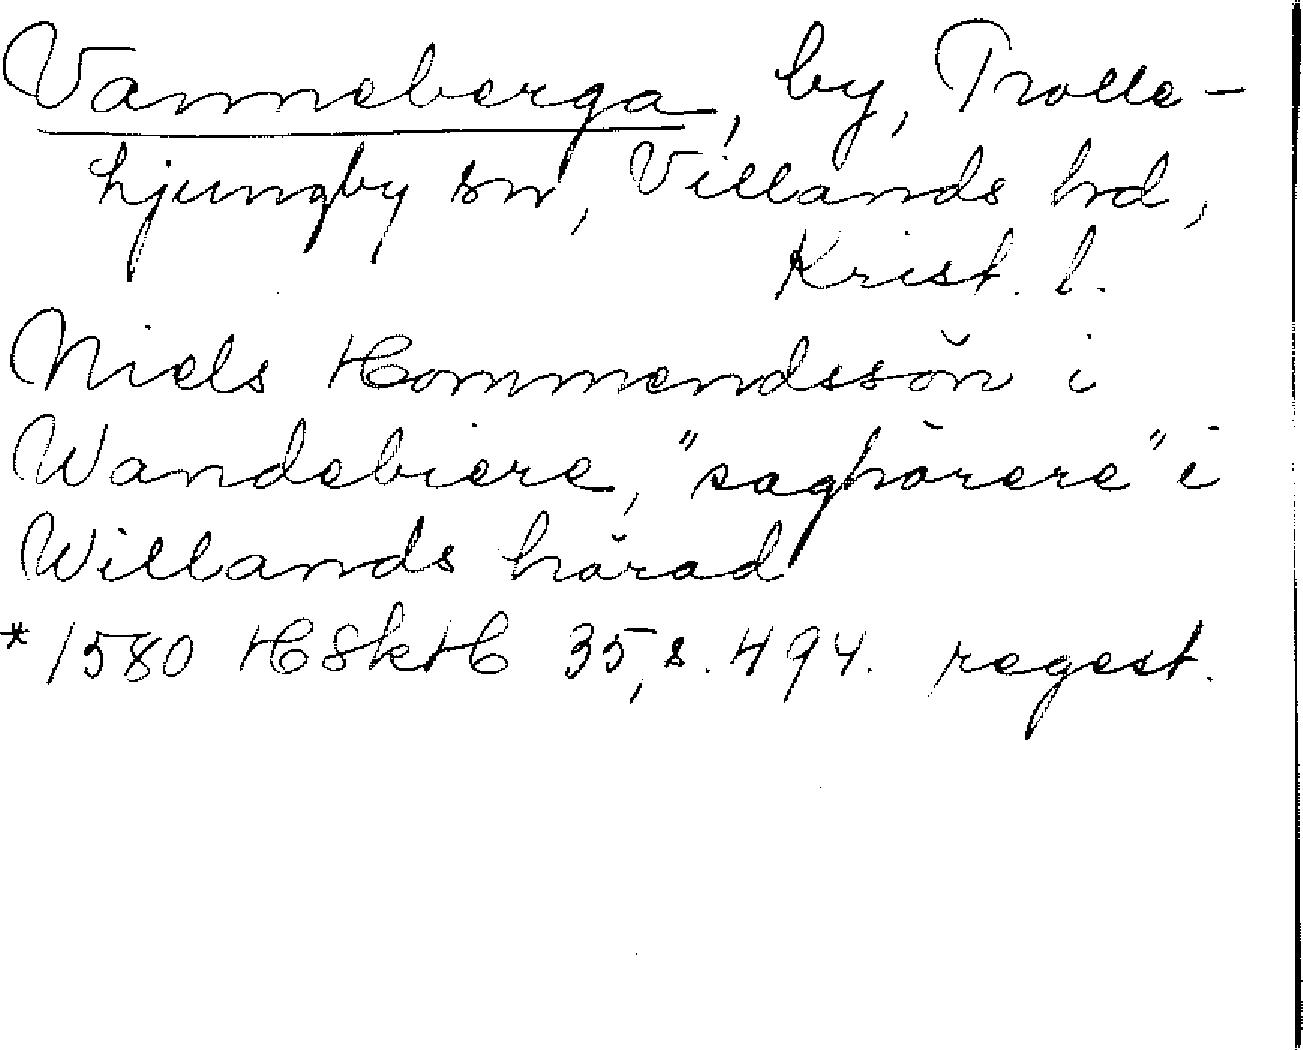 Vanneberga, by, Trolle-
Ljungby sn, Villands hd,
Krist. l.
Niels Hommendssön i
Wandebiere, "saghörere" i
Willands härad
*1580 HSkH 35, s. 494. regest.